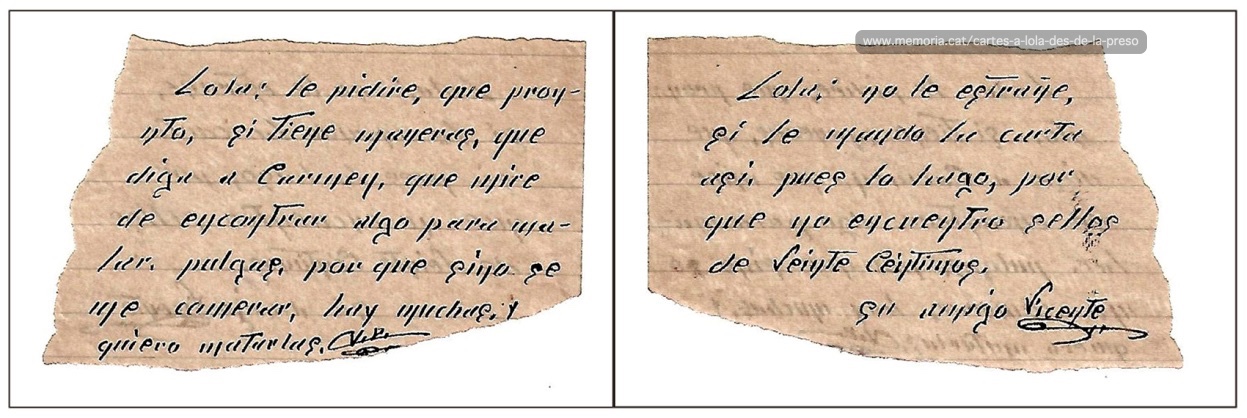 Lola; le pidire, que pron-
nto, si tiene maneras, que
diga a Carmen, que mire
de encontrar algo para ma-
tar. pulgas, por que sino se
me comerar, hay muchas, y
quiero matarlas. V.P.
www.memoria.cat/cartes-a-lola-des-de-la-preso
Lola; no le estrañe,
si le mando la carta
asi. pues lo hago, por
que no encuentro sellos
de Veinte Centimos.
su amigo Vicente